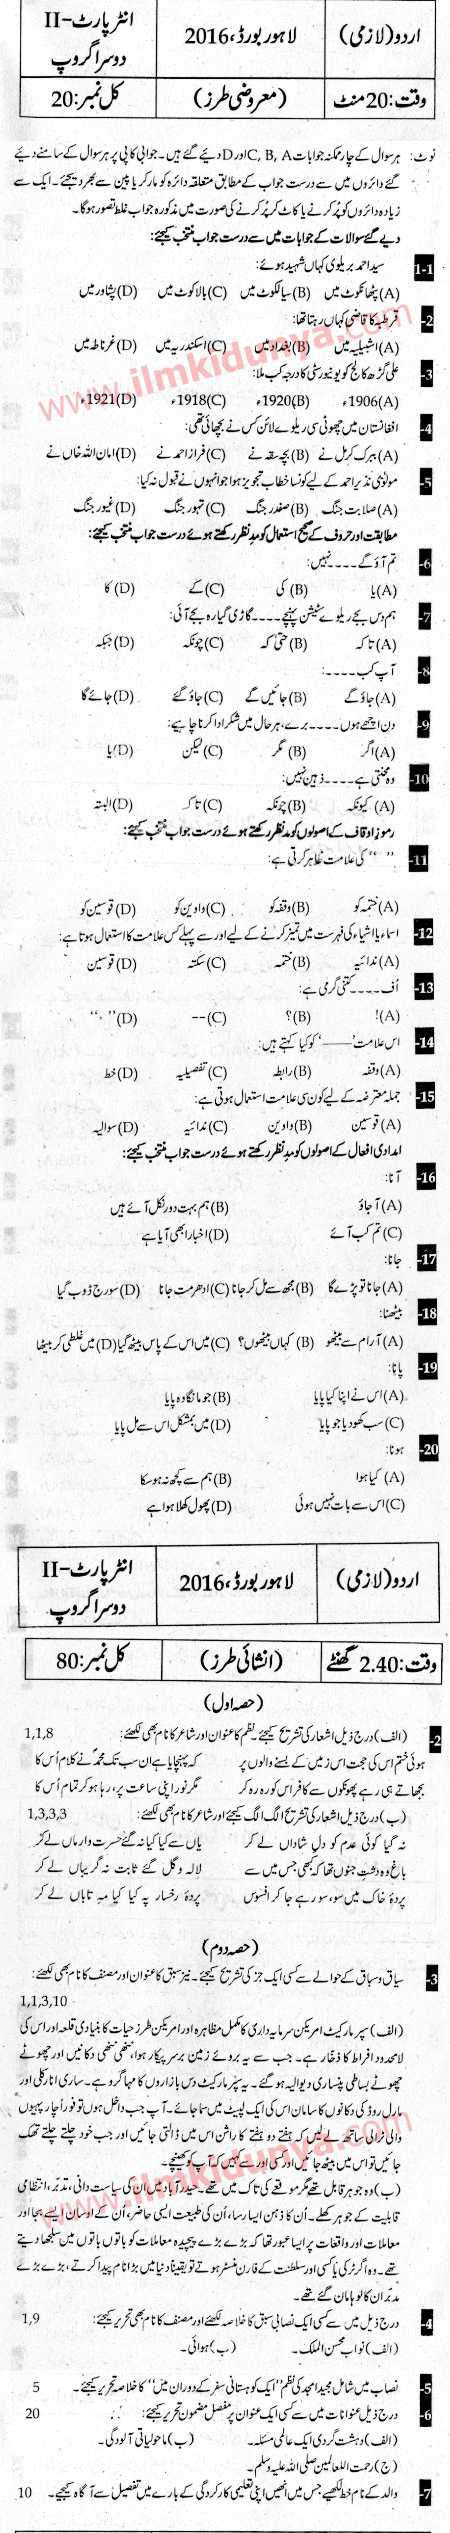 اردو (لازمی) لاہور بورڈ، 2016 انٹر پارٹ-II
دوسرا گروپ
وقت: 20 منٹ (معروضی طرز) کل نمبر: 20
نوٹ: ہر سوال کے چار ممکنہ جوابات A، B، C اور D دیے گئے ہیں۔ جوابی کاپی پر ہر سوال کے سامنے دیے
گئے دائروں میں سے درست جواب کے مطابق متعلقہ دائرہ کو مارکر یا پین سے بھر دیجئے۔ ایک سے
زیادہ دائروں کو پُر کرنے یا کاٹ کر پُر کرنے کی صورت میں مذکورہ جواب غلط تصور ہوگا۔
دیے گئے سوالات کے جوابات میں سے درست جواب منتخب کیجئے:
1-1 سید احمد بریلوی کہاں شہید ہوئے:
(A) پٹھانکوٹ میں (B) سیالکوٹ میں (C) بالاکوٹ میں (D) پشاور میں
2- قرطبہ کا قاضی کہاں رہتا تھا:
(A) اشبیلیہ میں (B) بغداد میں (C) اسکندریہ میں (D) غرناطہ میں
3- علی گڑھ کالج کو یونیورسٹی کا درجہ کب ملا:
(A) 1906ء (B) 1920ء (C) 1918ء (D) 1921ء
4- افغانستان میں چھوٹی سی ریلوے لائن کس نے بچھائی تھی:
(A) ببرک کرمل نے (B) بچہ سقہ نے (C) فراز احمد نے (D) امان اللہ خاں نے
5- مولوی نذیر احمد کے لیے کونسا خطاب تجویز ہوا جو انہوں نے قبول نہ کیا:
(A) صلابت جنگ (B) صفدر جنگ (C) تہور جنگ (D) غیور جنگ
مطابقت اور حروف کے صحیح استعمال کو مدِ نظر رکھتے ہوئے درست جواب منتخب کیجئے:
6- تم آؤ گے ۔۔۔۔ نہیں:
(A) یا (B) کی (C) کے (D) کا
7- ہم دس بجے ریلوے سٹیشن پہنچے ۔۔۔۔ گاڑی گیارہ بجے آئی:
(A) تاکہ (B) حتیٰ کہ (C) چونکہ (D) جبکہ
8- آپ کب ۔۔۔۔:
(A) جاؤ گے (B) جائیں گے (C) جاؤ گئے (D) جائے گا
9- دن اچھے ہوں ۔۔۔۔ برے، ہر حال میں شکر ادا کرنا چاہیے:
(A) اگر (B) مگر (C) لیکن (D) یا
10- وہ محنتی ہے ۔۔۔۔ ذہین نہیں:
(A) کیونکہ (B) چونکہ (C) تاکہ (D) البتہ
رموزِ اوقاف کے اصولوں کو مدِ نظر رکھتے ہوئے درست جواب منتخب کیجئے:
11- " " کی علامت ظاہر کرتی ہے:
(A) ختمہ کو (B) وقفہ کو (C) واوین کو (D) قوسین کو
12- اسماء یا اشیاء کی فہرست میں تمیز کرنے کے لیے اور سے پہلے کس علامت کا استعمال ہوتا ہے:
(A) ندائیہ (B) ختمہ (C) سکتہ (D) قوسین
13- اُف ۔۔۔۔ کتنی گرمی ہے:
(A) ! (B) ؟ (C) -- (D) " "
14- اس علامت '——' کو کیا کہتے ہیں:
(A) وقفہ (B) رابطہ (C) تفصیلیہ (D) خط
15- جملہ معترضہ کے لیے کون سی علامت استعمال ہوتی ہے:
(A) قوسین (B) واوین (C) ندائیہ (D) سوالیہ
امدادی افعال کے اصولوں کو مدِ نظر رکھتے ہوئے درست جواب منتخب کیجئے:
16- آنا:
(A) آ جاؤ (B) ہم بہت دور نکل آئے ہیں
(C) تم کب آئے (D) اخبار ابھی آیا ہے
17- جانا:
(A) جانا تو پڑے گا (B) مجھ سے مل کر جانا (C) ادھر مت جانا (D) سورج ڈوب گیا
18- بیٹھنا:
(A) آرام سے بیٹھو (B) کہاں بیٹھوں؟ (C) میں اس کے پاس بیٹھ گیا (D) میں غلطی کر بیٹھا
19- پانا:
(A) اس نے اپنا کیا پایا (B) جو مانگا وہ پایا
(C) سب کھو دیا جو پایا (D) میں بمشکل اس سے مل پایا
20- ہونا:
(A) کیا ہوا (B) ہم سے کچھ نہ ہو سکا
(C) اس سے بات نہیں ہوئی (D) پھول کھلا ہوا ہے
اردو (لازمی) لاہور بورڈ، 2016 انٹر پارٹ-II
دوسرا گروپ
وقت: 2.40 گھنٹے (انشائی طرز) کل نمبر: 80
(حصہ اول)
2- (الف) درج ذیل اشعار کی تشریح کیجئے۔ نظم کا عنوان اور شاعر کا نام بھی لکھئے: 1,1,8
ہوئی ختم اس کی حجت اس زمیں کے بسنے والوں پر کہ پہنچایا ہے ان سب تک محمدؐ نے کلام اُس کا
بجھاتے ہی رہے پھونکوں سے کافر اس کو رہ رہ کر مگر نور اپنی ساعت پر، رہا ہو کر تمام اُس کا
(ب) درج ذیل اشعار کی تشریح الگ الگ کیجئے اور شاعر کا نام بھی لکھئے: 1,3,3,3
نہ گیا کوئی عدم کو دلِ شاداں لے کر یاں سے کیا کیا نہ گئے حسرت و ارماں لے کر
باغ وہ دشتِ جنوں تھا کہ کبھی جس میں سے لالہ و گل گئے ثابت نہ گریباں لے کر
پردۂ خاک میں سو، سو رہے جا کر افسوس پردۂ رخسار پہ کیا کیا مہِ تاباں لے کر
(حصہ دوم)
3- سیاق و سباق کے حوالے سے کسی ایک جز کی تشریح کیجئے۔ نیز سبق کا عنوان اور مصنف کا نام بھی لکھئے:
1,1,3,10
(الف) سپر مارکیٹ امریکن سرمایہ داری کا مکمل مظاہرہ اور امریکن طرزِ حیات کا بنیادی قلعہ اور اس کی
لامحدود افراط کا ذخار ہے۔ جب سے یہ بروئے زمین برسرِ پیکار ہوا، ننھی ننھی دکانیں اور چھوٹے
چھوٹے بساطی پنساری دیوالیہ ہو گئے۔ یہ سپر مارکیٹ دس بازاروں کا مہا گرو ہے۔ ساری انارکلی اور
مال روڈ کی دکانوں کا سامان اس کی ایک لپیٹ میں سما جائے۔ آپ جب داخل ہوں تو فوراً چار پہیوں
والی ٹرالی ساتھ لے لیں کہ ہفتے دو ہفتے کا راشن اس میں ڈالتی جائیں اور جب خود چلتے چلتے تھک
جائیں تو اس میں بیٹھ جائیں اور کسی اور سے کہیں کہ آپ کو کھینچے۔
(ب) وہ جوہرِ قابل تھے مگر موقعے کی تاک میں تھے۔ حیدر آباد میں ان کی سیاست دانی، تدبر، انتظامی
قابلیت کے جوہر کھلے۔ ان کا ذہن ایسا رسا، اُن کی طبیعت ایسی حاضر، اُن کے اوسان ایسے بجا اور
معاملات اور واقعات پر ایسا عبور تھا کہ بڑے بڑے پیچیدہ معاملات کو باتوں باتوں میں سلجھا دیتے
تھے۔ وہ اگر ٹرکی یا کسی اور سلطنت کے فارن منسٹر ہوتے تو یقیناً دنیا میں بڑا نام پیدا کرتے، بڑے بڑے
مدبر ان کا لوہا مان گئے تھے۔
4- درج ذیل میں سے کسی ایک نصابی سبق کا خلاصہ لکھئے اور مصنف کا نام بھی تحریر کیجئے: 1,9
(الف) نواب محسن الملک۔ (ب) ہوائی۔
5- نصاب میں شامل مجید امجد کی نظم "ایک کوہستانی سفر کے دوران میں" کا خلاصہ تحریر کیجئے۔ 5
6- درج ذیل عنوانات میں سے کسی ایک عنوان پر مفصل مضمون تحریر کیجئے: 20
(الف) دہشت گردی ایک عالمی مسئلہ۔ (ب) ماحولیاتی آلودگی۔
(ج) رحمت اللعالمین صلی اللہ علیہ وسلم۔
7- والد کے نام خط لکھیے جس میں انھیں اپنی تعلیمی کارکردگی کے بارے میں تفصیل سے آگاہ کیجیے۔ 10
www.ilmkidunya.com
www.ilmkidunya.com